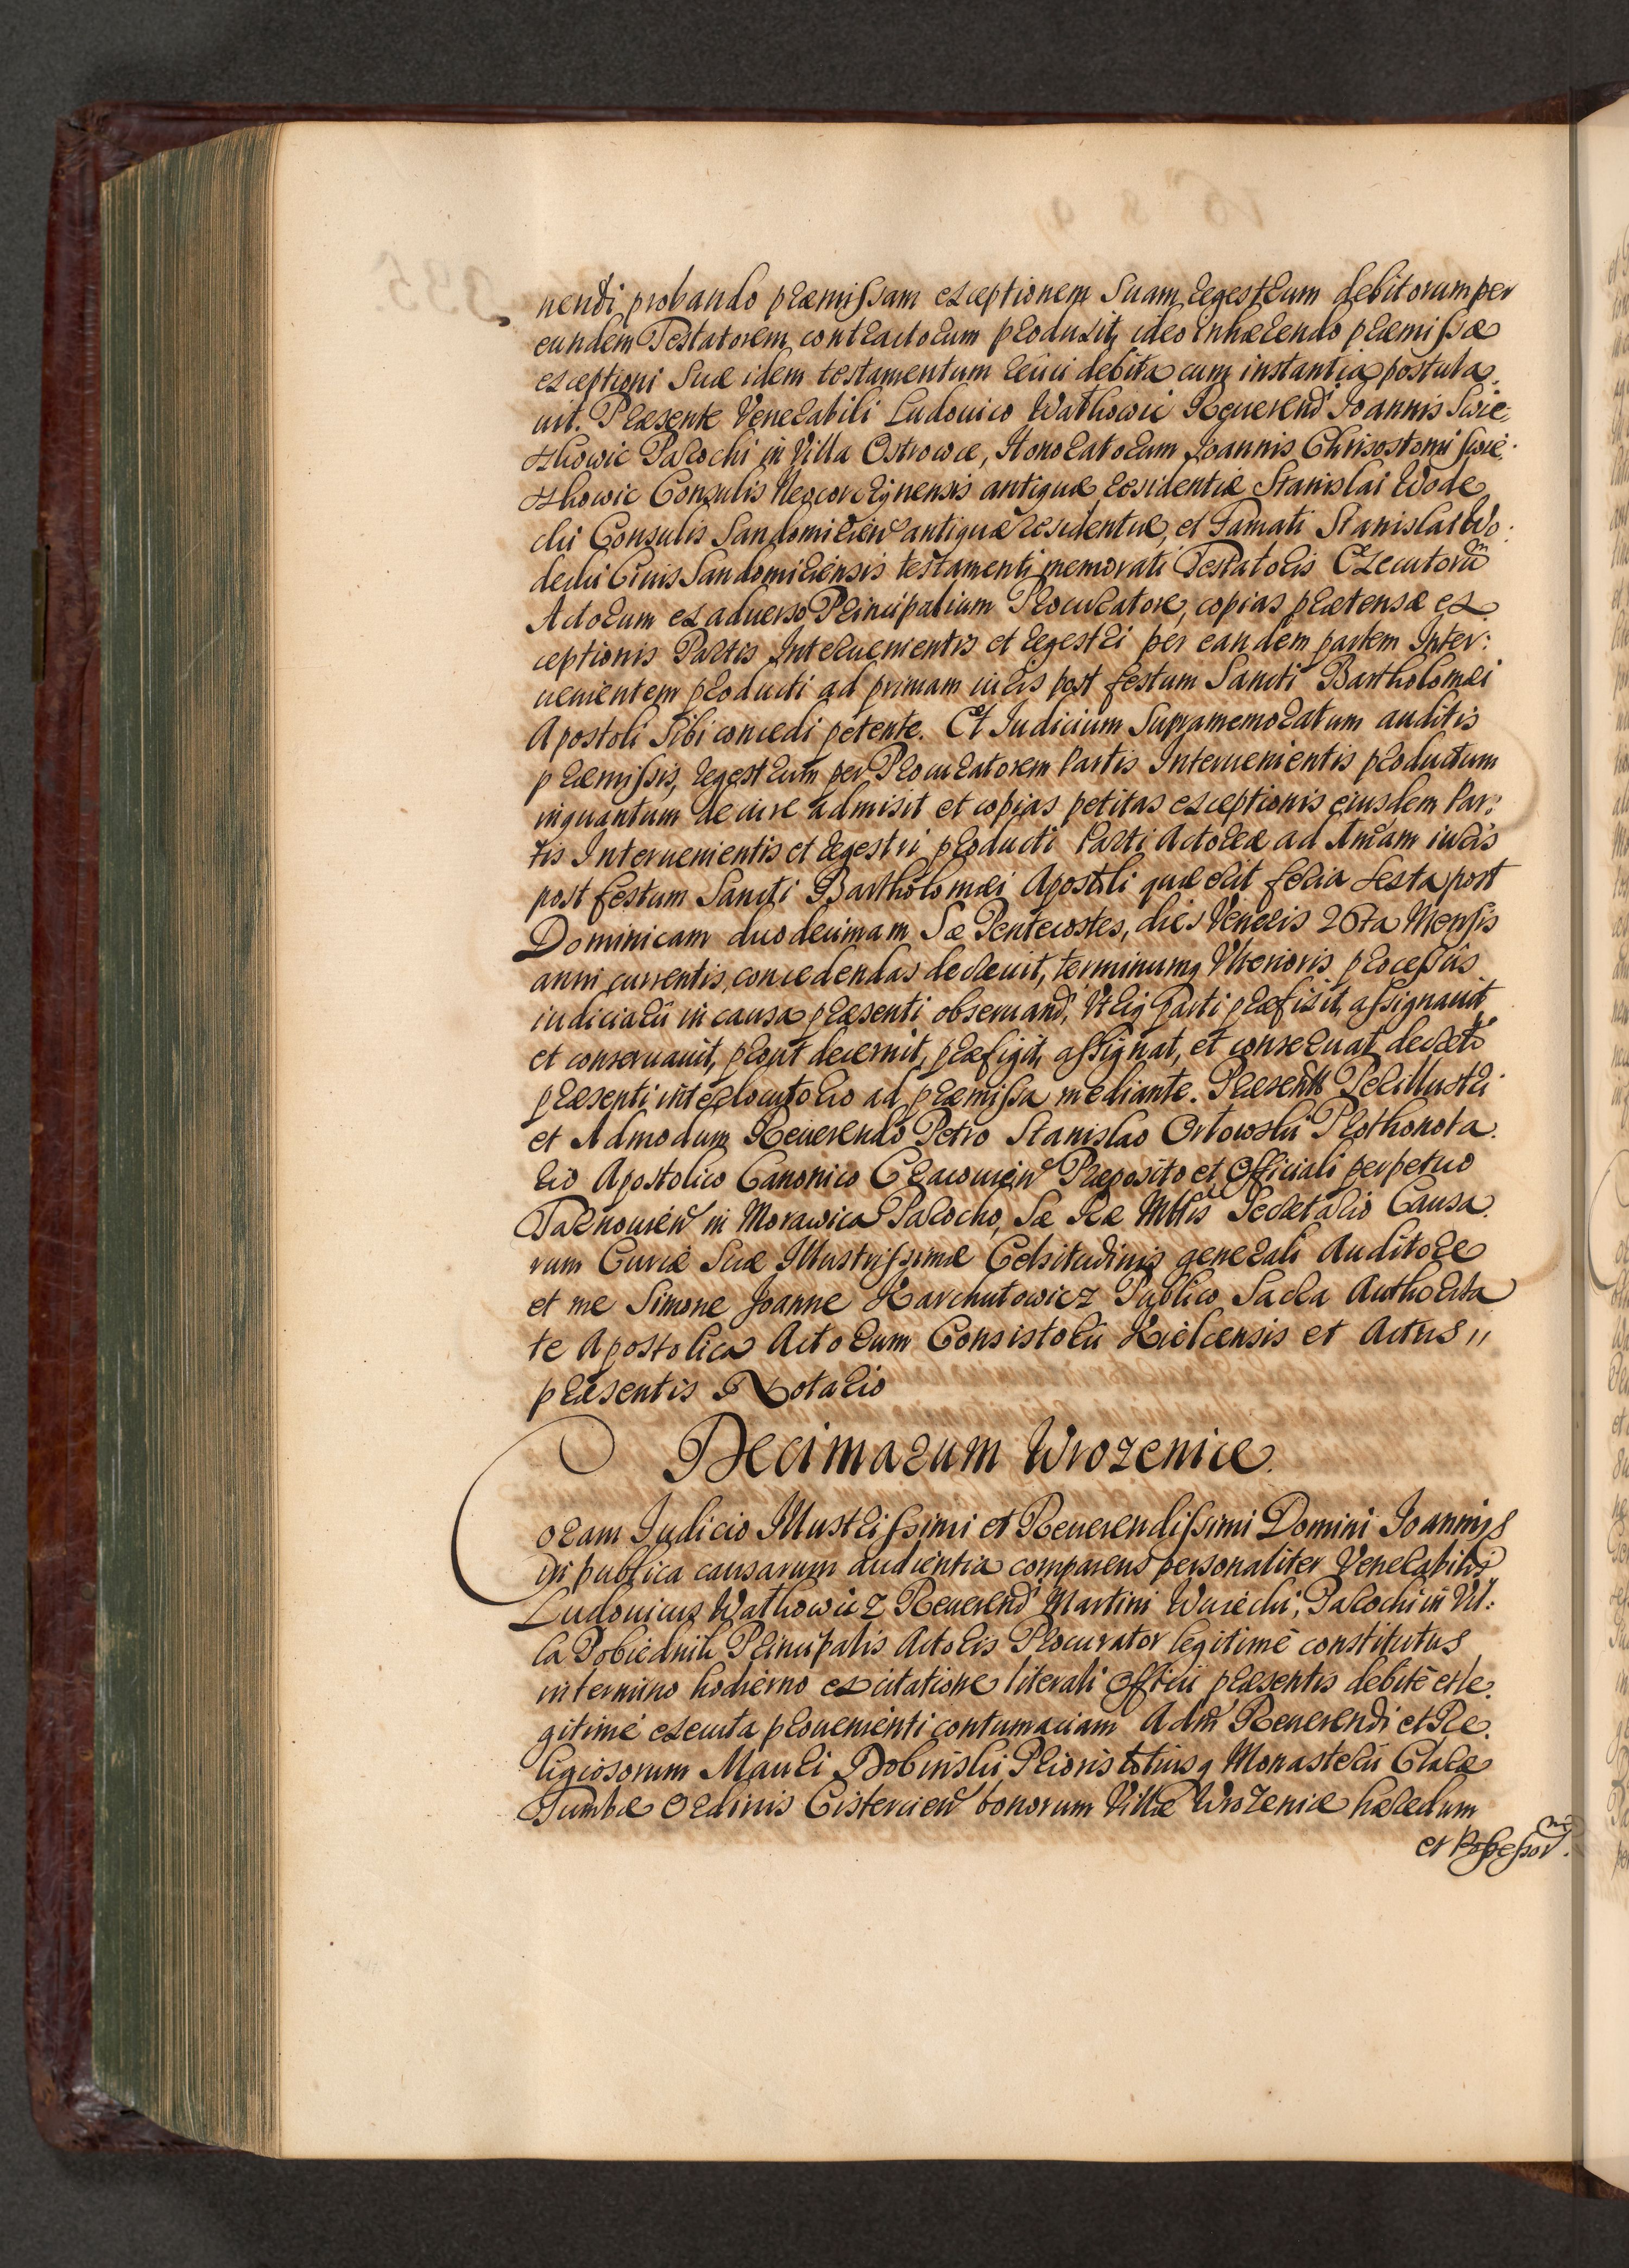 nendi probando præmissam exceptionem Suam regestrum debitorum per
eundem Testatorem contractorum produxit, ideo Inhærendo præmissæ
exceptioni Suæ idem testamentum reiici debita cum instantia postula,
uit. Præsente Venerabili Ludouico Wathowic Reuerend Joannis Swie:
zkowic Parochi in Villa Ostrowce, Honoratorum Joannis Chrisostomi Swie:
zkowic Consulis Neocorczynensis antiquæ residentiæ Stanislai Wode
cki Consulis Sandomirien antiquæ residentiæ, et Famati Stanislai Wo:
decki Ciuis Sandomiriensis testamenti memorati Testatoris Executorum
Actorum ex aduerso Principalium Procuratore, copias prætensæ ex
ceptionis Partis Interuenientis et regestri per eandem partem Inter:
uenientem producti ad primam iuris post festum Sancti Bartholomæi
Apostoli Sibi concedi petente. Et Iudicium Supramemoratum auditis
præmissis, regestrum per Procuratorem Partis Interuenientis productum
inquantum de iure admisit et copias petitas exceptionis eiusdem Par:
tis Interuenientis et regestri producti Parti Actoreæ ad Imam iuris
post festum Sancti Bartholomæi Apostoli quæ erit feria sexta post
Dominicam duodecimam Sæ Pentecostes, dies Veneris 26ta Mensis
anni currentis, concedendas decreuit, terminumq Vlterioris processus
iudiciarii in causa præsenti obseruand, Vtriq Parti præfixit, assignauit
et conseruauit, prout decernit, præfigit, assignat, et conseruat decreto
præsenti interlocutorio ad præmissa mediante. Præsente Perillustri
et Admodum Reuerendo Petro Stanislao Orłowski Prothonota
rio Apostolico Canonico Cracouien Præposito et Officiali perpetuo
Tarnouien in Morawica Parocho, Sæ Ræ Mttis Secretario Causa
rum Curiæ Suæ Illustrissimæ Celsitudinis generali Auditore
et me Simone Joanne Karchutowicz Publico Sacra Authorita
te Apostolica Actorum Consistorii Kielcensis et Actus //
præsentis Notario
Decimarum Wrozenice
Coram Judicio Illustrissimi et Reuerendissimi Domini Joannis
in publica causarum audientia comparens personaliter Venerabilis
Ludouicus Wathowicz Reuerend Martini Wuiecki, Parochi in Vil:
la Pobiednik Principalis Actoris Procurator legitime constitutus
in termino hodierno ex citatione literali officii præsentis debite et le
gitime executa prouenienti contumaciam Adm Reuerendi et Re
ligiosorum Mauri Dobinski Prioris totiusq Monasterii Claræ
Tumbæ Ordinis Cistercien bonorum Villæ Wrozenice hæredum
et Possessorum